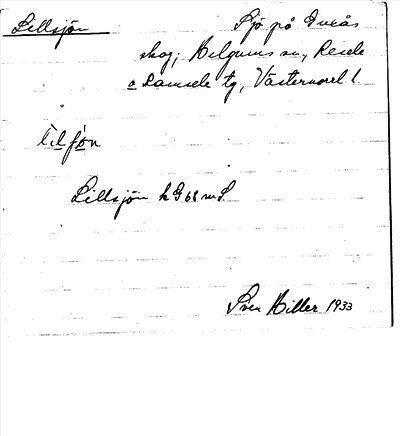 Lillsjön
Sjö på Gulås
skog; Helgums sn, Resele
o Ramsele tg, Västernorrl l.
Lillsjön k G 68 m S.
Sven Hiller 1933